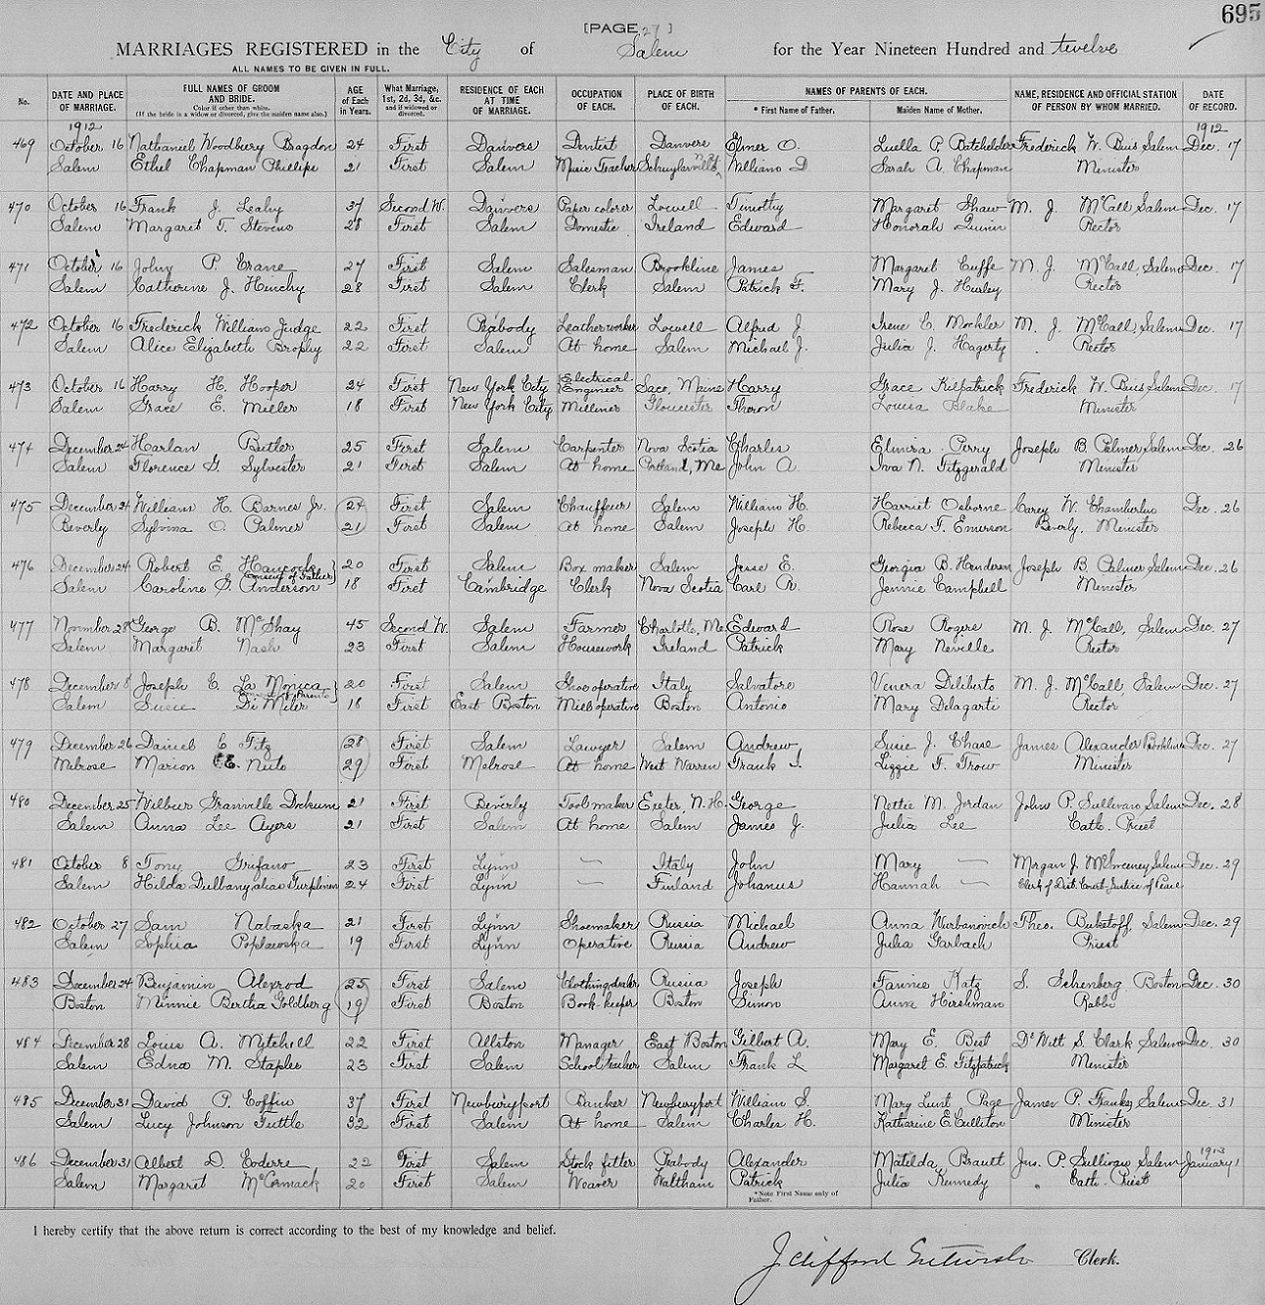 695
[PAGE 27]
MARRIAGES REGISTERED in the City of Salem for the Year Nineteen Hundred and twelve
ALL NAMES TO BE GIVEN IN FULL.
No. DATE AND PLACE OF MARRIAGE. FULL NAMES OF GROOM AND BRIDE. Color if other than white. (If the bride is a widow or divorced, give the maiden name also.) AGE of Each in Years. What Marriage, 1st, 2d, 3d, &c. and if widowed or divorced. RESIDENCE OF EACH AT TIME OF MARRIAGE. OCCUPATION OF EACH. PLACE OF BIRTH OF EACH. NAMES OF PARENTS OF EACH. * First Name of Father. Maiden Name of Mother. NAME, RESIDENCE AND OFFICIAL STATION OF PERSON BY WHOM MARRIED. DATE OF RECORD.
1912 1912
469 October 16 Nathaniel Woodbury Bragdon 24 First Danvers Dentist Danvers Elmer O. Luella P. Batchelder Frederick W. Buis Salem Dec. 17
Salem Ethel Chapman Phillips 21 First Salem Music Teacher Schuylerville William D. Sarah A. Chapman Minister
470 October 16 Frank J. Leahy 37 Second W. Danvers Paper colorer Lowell Timothy Margaret Shaw M. J. McCall Salem Dec. 17
Salem Margaret T. Stevens 28 First Salem Domestic Ireland Edward Honorah Quinn Rector
471 October 16 John P. Crane 27 First Salem Salesman Brookline James Margaret Cuffe M. J. McCall, Salem Dec. 17
Salem Catherine J. Hinchy 28 First Salem Clerk Salem Patrick F. Mary J. Hurley Rector
472 October 16 Frederick William Judge 22 First Peabody Leather worker Lowell Alfred J. Irene C. Mockler M. J. McCall, Salem Dec. 17
Salem Alice Elizabeth Brophy 22 First Salem At home Salem Michael J. Julia J. Hagerty Rector
473 October 16 Harry H. Hooper 24 First New York City Electrical Engineer Saco, Maine Harry Grace Kilpatrick Frederick W. Buis Salem Dec. 17
Salem Grace E. Miller 18 First New York City Milliner Gloucester Theron Louisa Blake Minister
474 December 24 Harlan Butler 25 First Salem Carpenter Nova Scotia Charles Elmira Perry Joseph B. Palmer Salem Dec. 26
Salem Florence G. Sylvester 21 First Salem At home Portland, Me John A. Iva N. Fitzgerald Minister
475 December 24 William H. Barnes Jr. 24 First Salem Chauffeur Salem William H. Harriet Osborne Carey W. Chamberlin Dec. 26
Beverly Sylvina O. Palmer 21 First Salem At home Salem Joseph H. Rebecca T. Emerson Beverly, Minister
476 December 24 Robert E. Hancock 20 First Salem Box maker Salem Jesse E. Georgia B. Henderson Joseph B. Palmer Salem Dec. 26
Consent of Father
Salem Caroline G. Anderson 18 First Cambridge Clerk Nova Scotia Carl R. Jennie Campbell Minister
477 November 28 George B. McShay 45 Second W. Salem Farmer Charlotte, Me. Edward Rose Rogers M. J. McCall, Salem Dec. 27
Salem Margaret Nash 23 First Salem Housework Ireland Patrick Mary Neville Rector
478 December 8 Joseph C. La Monica 20 First Salem Shoe operative Italy Salvatore Venera Deliberto M. J. McCall, Salem Dec. 27
Parents
Salem Susie Di Miler 16 First East Boston Mill operative Boston Antonio Mary Delagarti Rector
479 December 26 Daniel C. Fitz 28 First Salem Lawyer Salem Andrew Susie J. Chase James Alexander Brookline Dec. 27
Melrose Marion E. 29 First Melrose At home West Warren Frank I. Lizzie F. Trow Minister
480 December 25 Wilbur Granville Dockum 21 First Beverly Tool maker Exeter N.H. George Nettie M. Jordan John P. Sullivan Salem Dec. 28
Salem Anna Lee Ayers 21 First Salem At home Salem James J. Julia Lee Cath. Priest
481 October 8 Tony Grifano 23 First Lynn — Italy John Mary — Morgan J. McSweeney Salem Dec. 29
Salem Hilda alias 24 First Lynn — Finland Johanus Hannah — Clerk of Dist. Court Justice of Peace
482 October 27 Sam Nabaska 21 First Lynn Shoemaker Russia Michael Anna Theo. Salem Dec. 29
Salem Sophia Poplawska 19 First Lynn Operative Russia Andrew Julia Garbach Priest
483 December 24 Benjamin Alexrod 25 First Salem Clothing dealer Russia Joseph Fannie Katz S. Schenberg Boston Dec. 30
Boston Minnie Bertha Goldberg 19 First Boston Book-keeper Boston Simon Anna Hirshman Rabbi
484 December 28 Louis A. Mitchell 22 First Allston Manager East Boston Gilbert A. Mary E. Best De Witt S. Clark Salem Dec. 30
Salem Edna M. Staples 23 First Salem School teacher Salem Frank L Margaret E. Fitzpatrick Minister
485 December 31 David P. Coffin 37 First Newburyport Banker Newburyport William S. Mary Lunt Page James P. Franks Salem Dec. 31
Salem Lucy Johnson Tuttle 32 First Salem At home Salem Charles H. Katharine E Culliton Minister
1913
486 December 31 Albert D. Coderre 22 First Salem Stock fitter Peabody Alexander Matilda Brault Jno. P. Sullivan Salem January 1
Salem Margaret McCormack 20 First Salem Weaver Waltham Patrick Julia Kennedy Cath. Priest
*Note First Name only of Father.
I hereby certify that the above return is correct according to the best of my knowledge and belief.
J. Clifford Clerk.